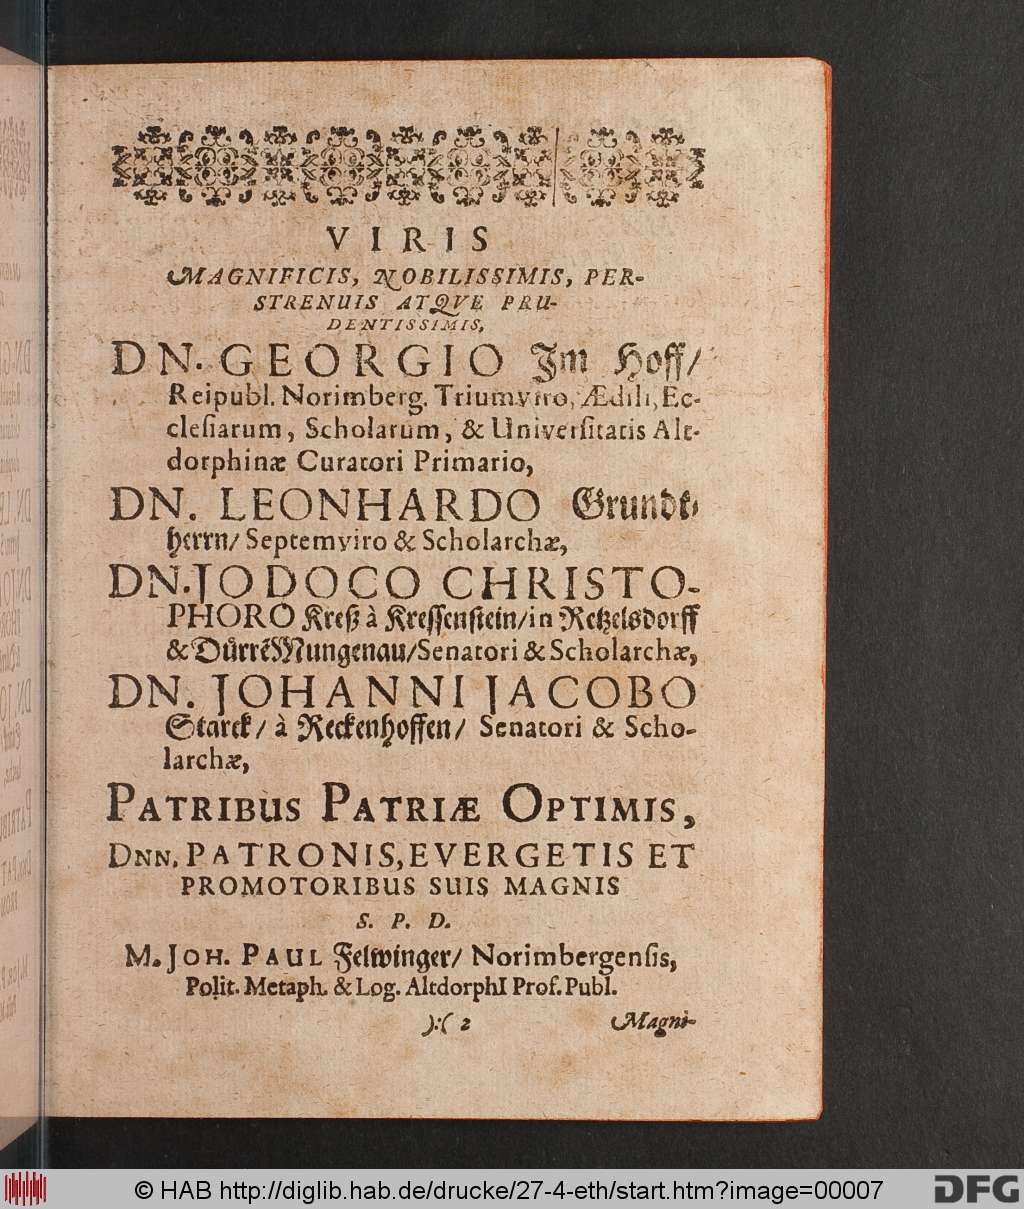 VIRIS
MAGNIFICIS, NOBILISSIMIS, PER-
STRENUIS ATQVE PRU-
DENTISSIMIS,
DN. GEORGIO Jm Hoff/
Reipubl. Norimberg. Triumviro, Ædili, Ec-
clesiarum, Scholarum, & Universitatis Alt-
dorphinæ Curatori Primario,
DN. LEONHARDO Grundt-
herrn/ Septemviro & Scholarchæ,
DN. JODOCO CHRISTO-
PHORO Kreß à Kressenstein/ in Retzelsdorff
& Dürrẽ Mungenau/ Senatori & Scholarchæ,
DN. JOHANNI JACOBO
Starck/ à Reckenhoffen/ Senatori & Scho-
larchæ,
PATRIBUS PATRIÆ OPTIMIS,
DNN. PATRONIS, EVERGETIS ET
PROMOTORIBUS SUIS MAGNIS
S. P. D.
M. JOH. PAUL Felwinger/ Norimbergensis,
Polit. Metaph. & Log. AltdorphI Prof. Publ.
):( 2 Magni-
© HAB http://diglib.hab.de/drucke/27-4-eth/start.htm?image=00007
DFG